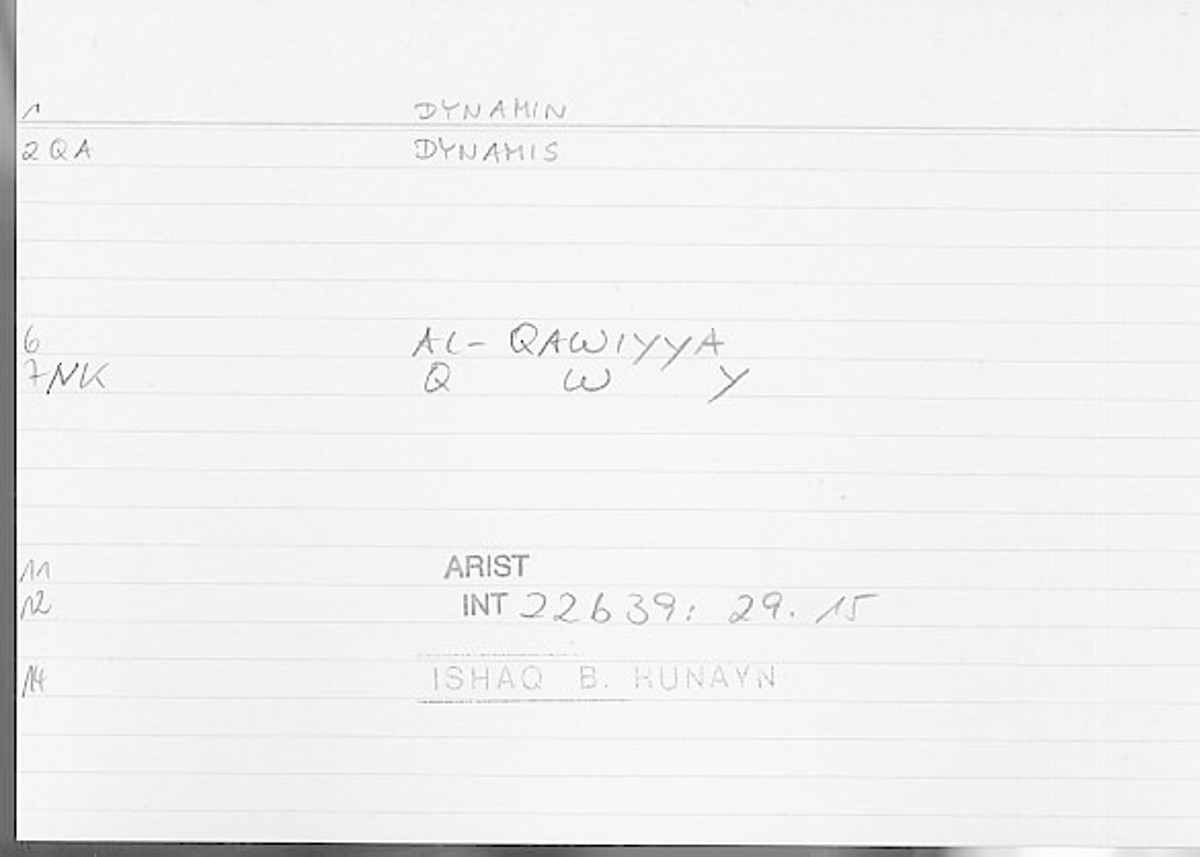 1 DYNAMIN
2 QA DYNAMIS
6 AL- QAWIYYA
7 NK Q W Y
11 ARIST
12 INT 22639: 29. 15
14 ISHAQ B. HUNAYN